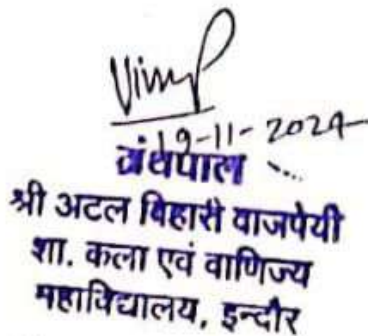 19-11-2024
ग्रंथपाल
श्री अटल बिहारी वाजपेयी
शा. कला एवं वाणिज्य
महाविद्यालय, इन्दौर